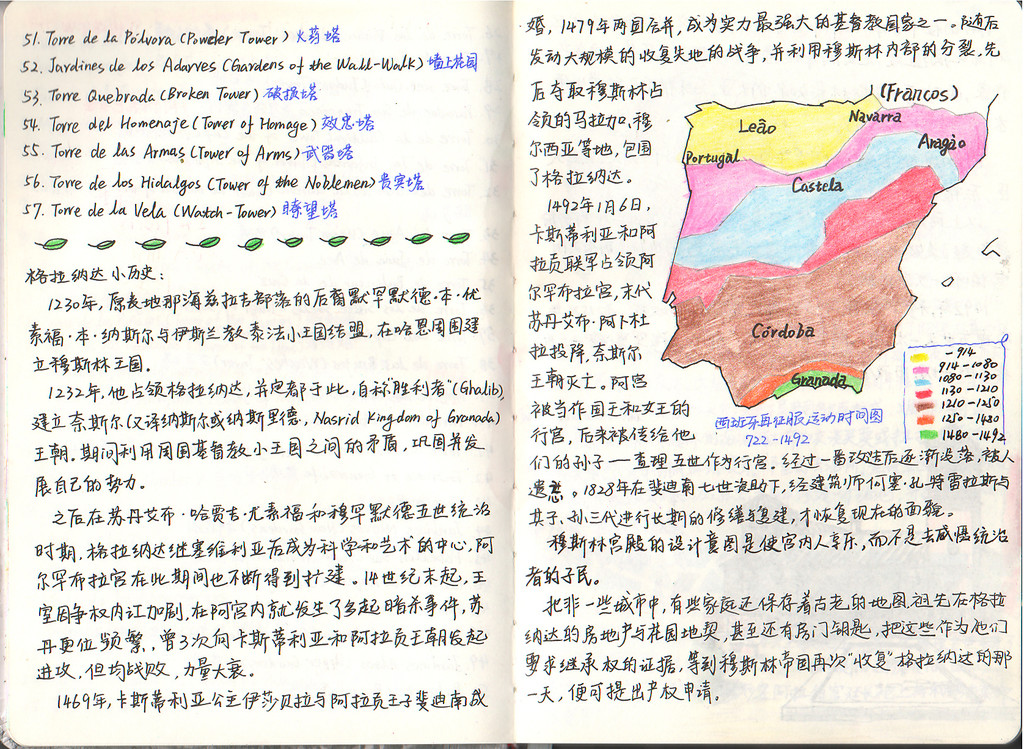 51. Torre de la Pólvora (Powder Tower) 火药塔
52. Jardines de los Adarves (Gardens of the Wall-Walk) 墙上花园
53. Torre Quebrada (Broken Tower) 破损塔
54. Torre del Homenaje (Tower of Homage) 效忠塔
55. Torre de las Armas (Tower of Arms) 武器塔
56. Torre de los Hidalgos (Tower of the Noblemen) 贵宾塔
57. Torre de la Vela (Watch-Tower) 瞭望塔
格拉纳达小历史:
1230年,原袭地那海兹拉吉部落的后裔默罕默德·本·优
素福·本·纳斯尔与伊斯兰教泰法小王国结盟,在哈恩周围建
立穆斯林王国。
1232年,他占领格拉纳达,并定都于此,自称“胜利者”(Ghalib),
建立奈斯尔(又译纳斯尔或纳斯里德, Nasrid Kingdom of Granada)
王朝。期间利用周围基督教小王国之间的矛盾,巩固并发
展自己的势力。
之后在苏丹艾布·哈贾吉·尤素福和穆罕默德五世统治
时期,格拉纳达继塞维利亚后成为科学和艺术的中心,阿
尔罕布拉宫在此期间也不断得到扩建。14世纪末起,王
室因争权内讧加剧,在阿宫内就发生了多起暗杀事件,苏
丹更位频繁,曾3次向卡斯蒂利亚和阿拉贡王朝发起
进攻,但均战败,力量大衰。
1469年,卡斯蒂利亚公主伊莎贝拉与阿拉贡王子斐迪南成
婚,1479年两国合并,成为实力最强大的基督教国家之一。随后
发动大规模的收复失地的战争,并利用穆斯林内部的分裂,先
后夺取穆斯林占
领的马拉加、穆
尔西亚等地,包围
了格拉纳达。
1492年1月6日,
卡斯蒂利亚和阿
拉贡联军占领阿
尔罕布拉宫,末代
苏丹艾布·阿卜杜
拉投降,奈斯尔
王朝灭亡。阿宫
被当作国王和女王的
行宫,后来被传给他
们的孙子——查理五世作为行宫。经过一番改造后逐渐没落,被人
遗忘。1828年在斐迪南七世资助下,经建筑师何塞·孔特雷拉斯与
其子、孙三代进行长期的修缮与复建,才恢复现在的面貌。
穆斯林宫殿的设计意图是使宫内人享乐,而不是去威慑统治
者的子民。
北非一些城市中,有些家庭还保存着古老的地图,祖先在格拉
纳达的房地产与花园地契,甚至还有房门钥匙,把这些作为他们
要求继承权的证据,等到穆斯林帝国再次“收复”格拉纳达的那
一天,便可提出产权申请。
(Francos)
Navarra
Leão
Aragão
Portugal
Castela
Córdoba
Granada
-914
914-1080
1080-1130
1130-1210
1210-1250
1250-1480
1480-1492
西班牙再征服运动时间图
722-1492